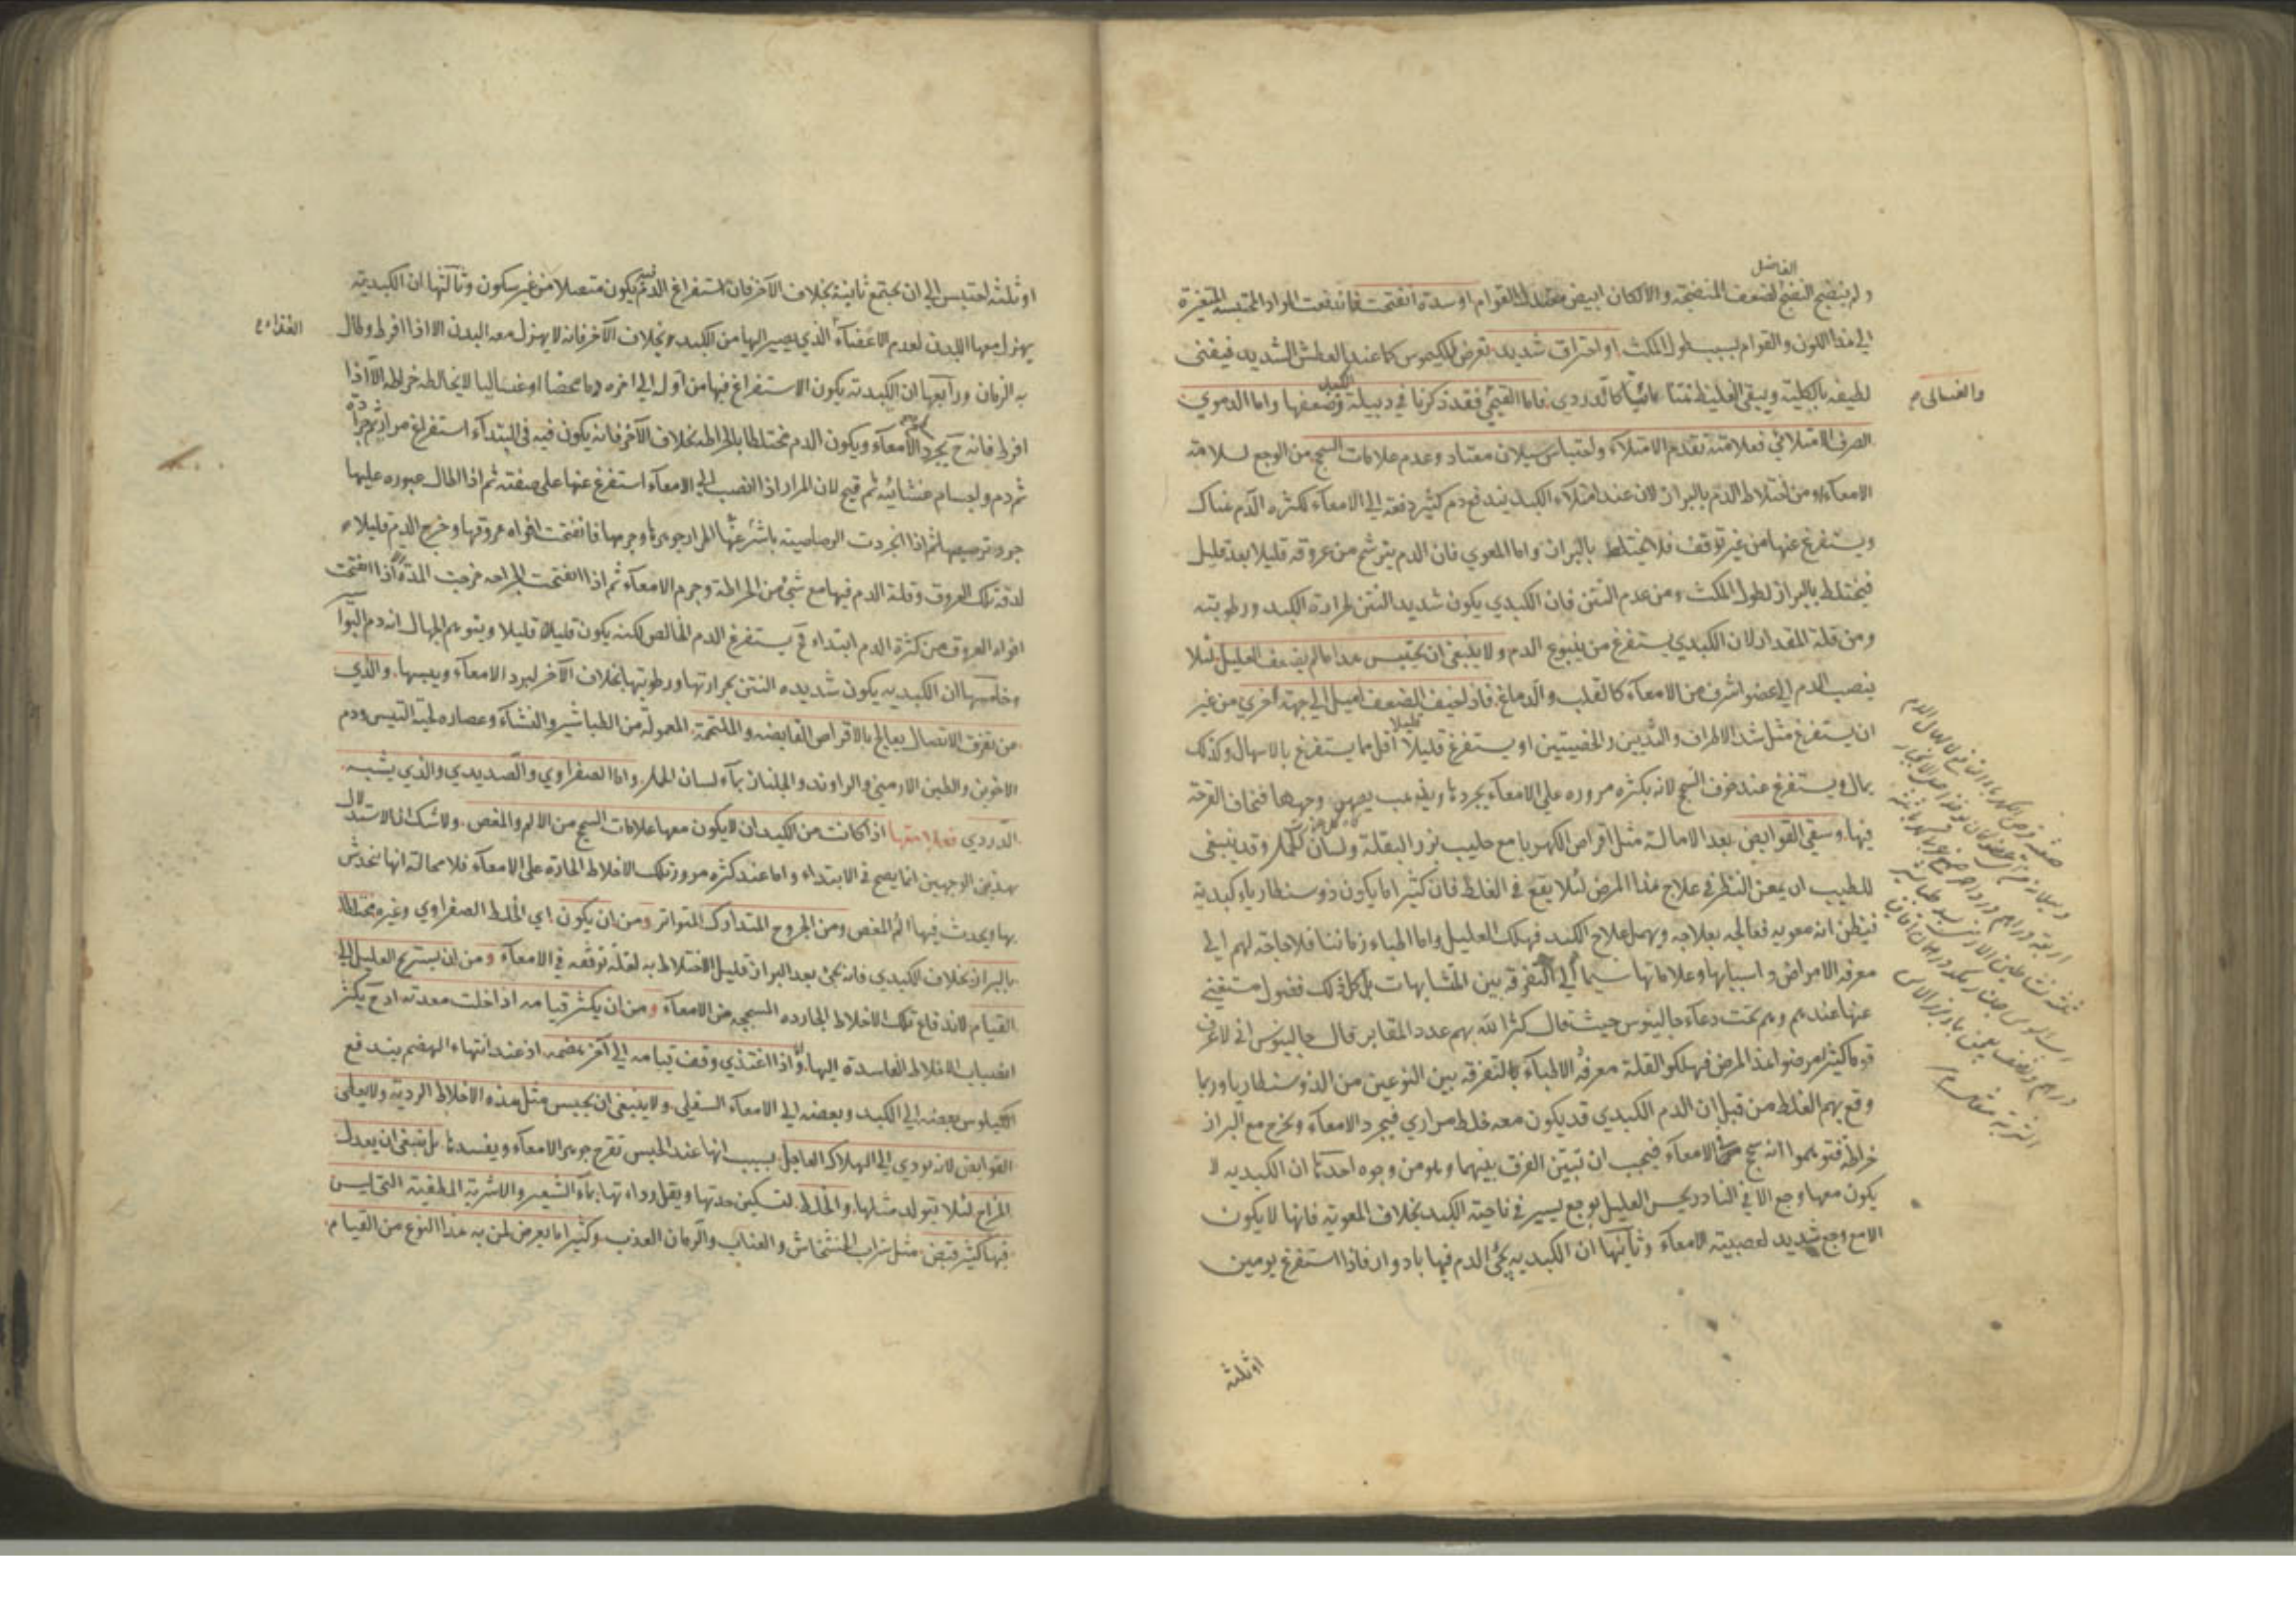 الفاضل
ولم ينضج النضج لضعف المنضجة والا لكان ابيض معتدل القوام او سدة انفتحت فاندفعت المواد المحتبسة المتغيرة
الى هذا اللون والقوام بسبب طول المكث او احتراق شديد تعرض للكيموس كما عند العطش الشديد فيفنى
لطيفه بالكلية ويبقى الغليظ كالدردي فاما القيحي فقد ذكرنا في دبيلة الكبد وضعفها واما الدموي
والغسالي م
الصرف الامتلائي فعلامته تقدم الامتلاء واحتباس سيلان معتاد وعدم علامات السحج من الوجع لسلامة
الامعاء ومن اختلاط الدم بالبراز لان عند امتلاء الكبد يندفع دم كثير دفعة الى الامعاء لكثرة الدم هناك
ويستفرغ عنها من غير توقف فلا يختلط بالبراز واما المعوي فان الدم يترشح من عروقه قليلا بعد قليل
فيختلط بالبراز لطول المكث ومن عدم النتن فان الكبدي يكون شديد النتن لحرارة الكبد ورطوبته
ومن قلة المقدار لان الكبدي يستفرغ من ينبوع الدم ولا ينبغي ان يحتبس هذا ما لم يضعف العليل لئلا
ينصب الدم الى عضو اشرف من الامعاء كالقلب والدماغ فاذ لخيف الضعف اميل الى جهة اخرى من غير
ان يستفرغ مثل شد الاطراف والثديين والخصيتين او يستفرغ قليلا قليلا اقل مما يستفرغ بالاسهال وكذلك
يمال ويستفرغ عند خوف السحج لانه بكثرة مروره على الامعاء يجردها ويذهب وجهها فتحاف القرحة
فيها وسقي القوابض بعد الامالة مثل اقراص الكهربا مع حليب بزر البقلة ولسان الحمل وقد ينبغي
للطبيب ان يمعن النظر في علاج هذا المرض لئلا يقع في الغلط فان كثيرا ما يكون ذوسنطاريا كبدية
فيظن انه معوية فعالجه بعلاجه ويهمل علاج الكبد فهلك العليل واما اطباء زماننا فلا حاجة لهم الى
معرفة الامراض واسبابها وعلاماتها سيما الى التفرقة بين المتشابهات بل كل ذلك فضول مستغنى
عنها عندهم وهم تحت دعاء جالينوس حيث قال كثر الله بهم عدد المقابر قال جالينوس اني لاعرف
قوما كثيرا مرضوا هذا المرض فهلكوا لقلة معرفة الاطباء بالتفرقة بين النوعين من الذوسنطاريا وربما
وقع بهم الغلط من قبل ان الدم الكبدي قد يكون معه خلط مراري فيجرد الامعاء ويخرج مع البراز
خراطة فتوهموا انه سحج الامعاء فيجب ان تبين الفرق بينهما وهو من وجوه احدها ان الكبدية لا
يكون معها وجع الا في النادر يحس العليل بوجع يسير في ناحية الكبد بخلاف المعوية فانها لا يكون
الا مع وجع شديد لعصبية الامعاء وثانيها ان الكبدية يجئ الدم فيها بادوار فاذا استفرغ يومين
او ثلثة
او ثلثة احتبس الى ان يجتمع ثانية بخلاف الآخر فان استفراغ الدم فيه يكون متصلا من غير سكون وثالثها ان الكبدية
يهزل معها البدن لعدم الغذاء الذي يصير اليها من الكبد بخلاف الآخر فانه لا يهزل معه البدن الا اذا افرط وطال
به الزمان ورابعها ان الكبدية يكون الاستفراغ فيها من اوله الى اخره دما محضا او غساليا لا يخالطه خراطة الا اذا
افرط فانه ح يجرد الامعاء ويكون الدم مختلطا بالخراطة بخلاف الآخر فانه يكون فيه في الابتداء استفراغ مرار ثم جرادة
ثم دم واجسام غشائية ثم قيح لان المرار اذا انصب الى الامعاء استفرغ عنها على صفته ثم اذا طال عبوره عليها
جرد ترصيصها ثم اذا انجردت الرصاصية باشر المرار جوهرها وجرمها فانفتحت افواه عروقها وخرج الدم قليلا
لدقة تلك العروق وقلة الدم فيها مع شئ من الخراطة وجرم الامعاء ثم اذا انفتحت الجراحة خرجت المدة واذا انفتحت
افواه العروق من كثرة الدم ابتداء فح يستفرغ الدم الخالص لكنه يكون قليلا قليلا ويتوهم الجهال انه دم البواسير
وخامسها ان الكبدية يكون شديدة النتن بحرارتها ورطوبتها بخلاف الآخر لبرد الامعاء ويبسها والذي
من تفرق الاتصال يعالج بالاقراص القابضة والملتحمة المعمولة من الطباشير والنشاء وعصارة لحية التيس ودم
الاخوين والطين الارمني والراوند والجلنار بماء لسان الحمل واما الصفراوي والصديدي والذي يشبه
الدردي فعلامتها اذا كانت من الكبد ان لا يكون معها علامات السحج من الالم والمغص ولا شك ان الاستدلال
بهذين الوجهين انما يصح في الابتداء واما عند كثرة مرور تلك الاخلاط الحارة على الامعاء فلا محالة انها تخدش
بها ويحدث فيها الم المغص ومن الخروج المتدارك المتواتر ومن ان يكون اي الخلط الصفراوي وغيره مختلطا
بالبراز بخلاف الكبدي فانه يجئ بعد البراز قليل الاختلاط به لقلة توقفه في الامعاء ومن ان يستريح العليل الى
القيام لاندفاع تلك الاخلاط الحادة المسحجة من الامعاء ومن ان يكثر قيامه اذا خلت معدته اذ ح يكثر
انصباب الاخلاط الفاسدة اليها واذا اغتذى وقف قيامه الى آخر هضمه اذ عند انتهاء الهضم يندفع
الكيلوس بعضه الى الكبد وبعضه الى الامعاء السفلى ولا ينبغي ان يحبس مثل هذه الاخلاط الردية ولا يعطى
القوابض لانه يؤدي الى الهلاك العاجل بسبب انها عند الحبس تقرح جوهر الامعاء ويفسدها بل ينبغي ان يعدل
المزاج لئلا يتولد مثلها والخلط لتسكين حدتها ويقل رداءتها بماء الشعير والاشربة المطفية التي ليس
فيها كثير قبض مثل شراب الخشخاش والعناب والرمان العذب وكثيرا ما يعرض لمن به هذا النوع من القيام